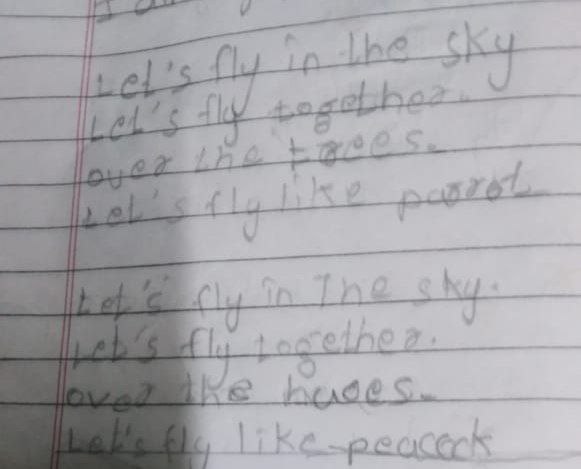 Let's fly in the sky
Let's fly together.
over the trees.
Let's fly like parrot
Let's fly in The sky.
Let's fly together.
over the
Let's fly like peacock